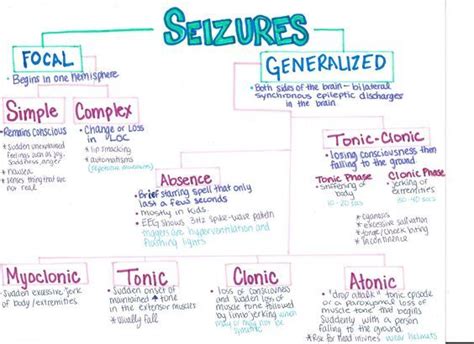 SEIZURES
FOCAL
• Begins in one hemisphere
GENERALIZED
• Both sides of the brain - bilateral
synchronous epileptic discharges
in the brain
Simple
• Remains conscious
* sudden unexplained
feelings such as joy,
sadness, anger
* nausea
* senses things that are
not real
Complex
• Change or Loss
in LOC
* lip smacking
* automatisms
(repetitive movements)
Absence
• Brief staring spell that only
last a few seconds
• mostly in kids
• EEG shows 3Hz spike-wave pattern
triggers are hyperventilation and
flashing lights
Tonic-Clonic
• losing consciousness then
falling to the ground.
Tonic Phase
- stiffening of
body
10-20 secs
Clonic Phase
- jerking of
extremities
30-40 secs
* cyanosis
* excessive salivation
* tongue/cheek biting
* Incontinence
Myoclonic
• Sudden excessive jerk
of body/extremities
Tonic
• Sudden onset of
maintained ↑ tone
in the extensor muscles
* Usually fall
Clonic
• loss of consciousness
and sudden loss of
muscle tone followed
by limb jerking which
may or may not be
symmetric
Atonic
• "drop attack" tonic episode
or a paroxysmal loss of
muscle tone that begins
suddenly with a person
falling to the ground
* Risk for Head injuries wear helmets